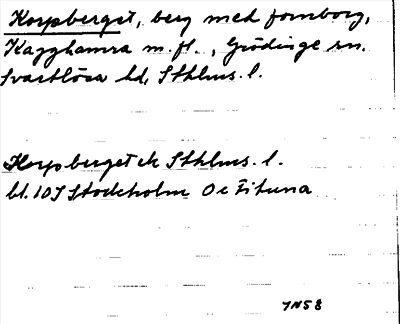 Korpberget, berg med fornborg,
Kagghamra m.fl., Grödinge sn.
Svartlösa hd, Sthlms. l.
Korpberget ek Sthlms. l.
bl. 10 I Stockholm Oc Fituna
JN58